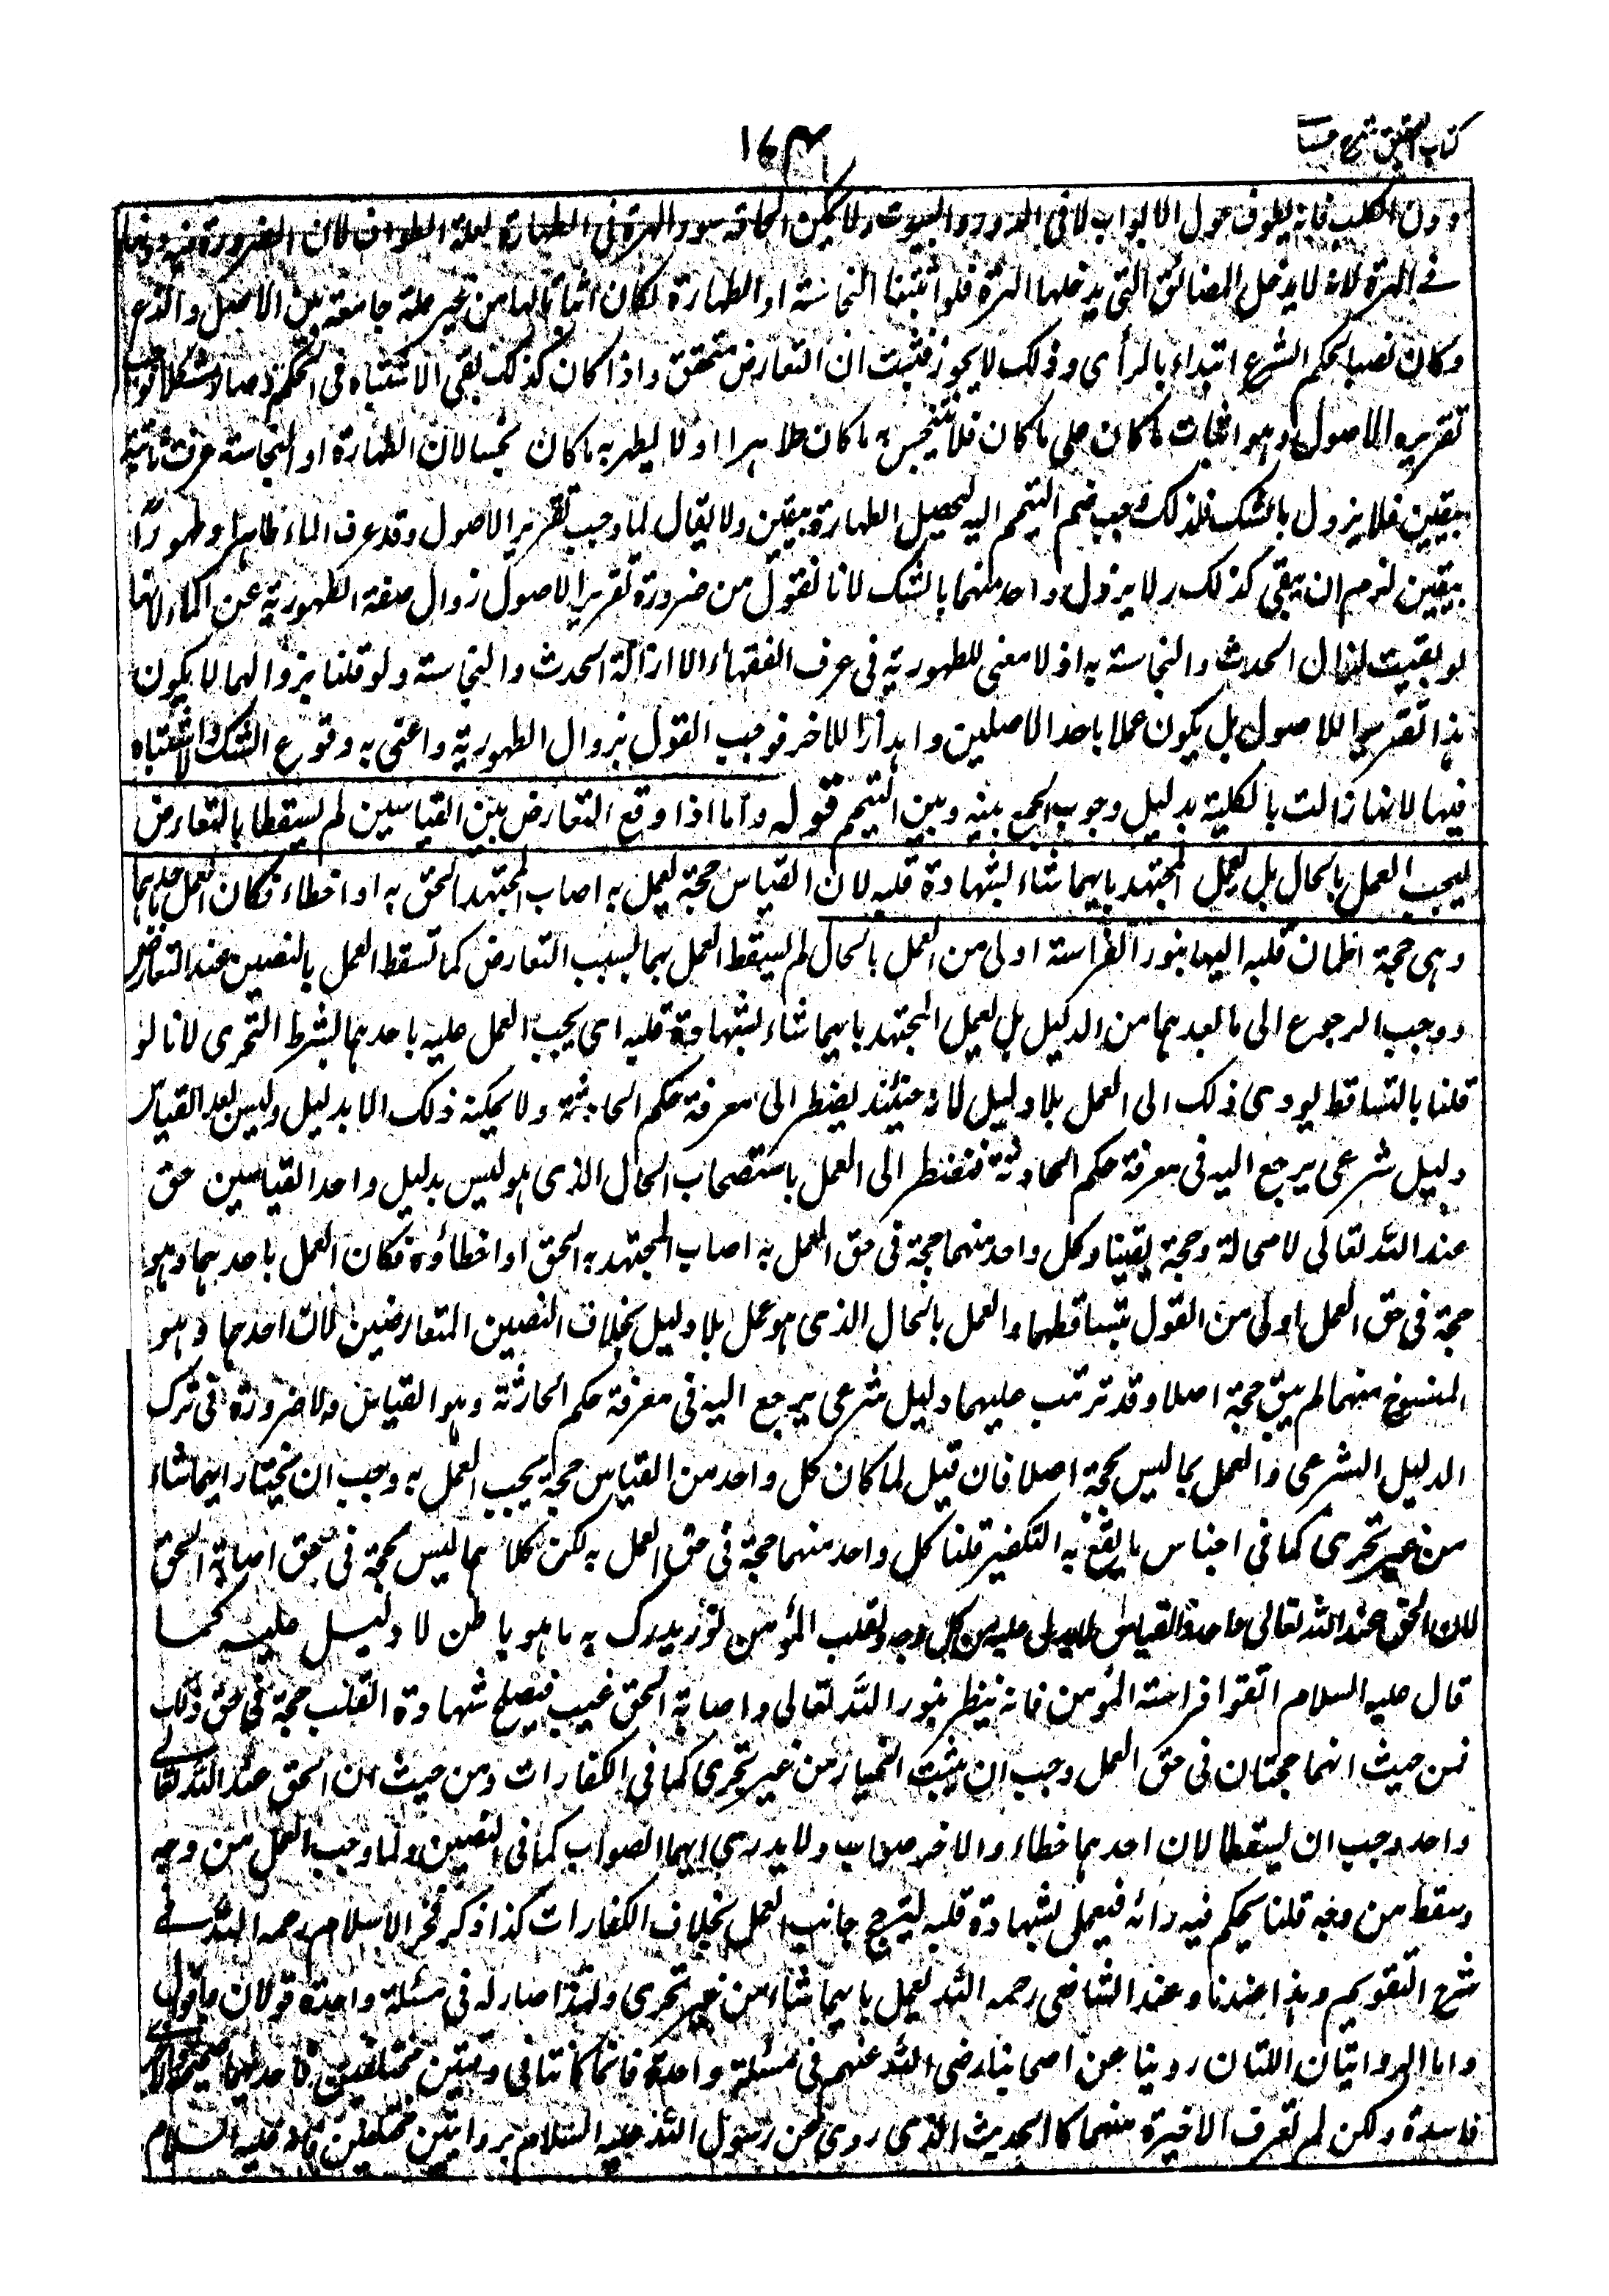 كتاب التحقيق شرح حسامى
١٧٣
دون الكلب فانه يطوف حول الابواب لا فى الدور والبيوت ولا يمكن الحاقه بسور الهرة فى الطهارة لعلة الطواف لان الضرورة فيه دونها
فى الهرة لانه لا يدخل المضائق التى يدخلها الهرة فلو اثبتنا النجاسة او الطهارة لكان اثباتا لها من غير علة جامعة بين الاصل والفرع
وكان نصبا لحكم الشرع ابتداء بالرأى وذلك لا يجوز فثبت ان التعارض متحقق واذا كان كذلك بقى الاشتباه فى الحكم وصار مشكلا فوجب
تقرير الاصول وهو اثبات ما كان على ما كان فلا يتنجس به ما كان طاهرا او لا يطهر به ما كان نجسا لان الطهارة او النجاسة عرفت ثابتة
بيقين فلا يزول بالشك فلذلك وجب ضم التيمم اليه ليحصل الطهارة بيقين ولا يقال لما وجب تقرير الاصول وقد عرف الماء طاهرا وطهورا
بيقين لزم ان يبقى كذلك ولا يزول واحد منهما بالشك لانا نقول من ضرورة تقرير الاصول زوال صفة الطهورية عن الماء لانها
لو بقيت لزال الحدث والنجاسة به اذ لا معنى للطهورية فى عرف الفقهاء الا ازالة الحدث والنجاسة ولو قلنا بزوالهما لا يكون
هذا تقريرا للاصول بل يكون عملا باحد الاصلين واهدارا للاخر فوجب القول بزوال الطهورية واعنى به وقوع الشك والاشتباه
فيها لا انها زالت بالكلية بدليل وجوب الجمع بينه وبين التيمم قوله واما اذا وقع التعارض بين القياسين لم يسقطا بالتعارض
ليجب العمل بالحال بل يعمل المجتهد بايهما شاء بشهادة قلبه لان القياس حجة يعمل به اصاب المجتهد الحق به او اخطاء فكان العمل باحدهما
وهى حجة اطمأن قلبه اليها بنور الفراسة اولى من العمل بالحال لم يسقط العمل بهما بسبب التعارض كما تسقط العمل بالنصين عند التعارض
ووجب الرجوع الى ما بعدهما من الدليل بل يعمل المجتهد بايهما شاء بشهادة قلبه اى يجب العمل عليه باحدهما بشرط التحرى لانا لو
قلنا بالتساقط يودى ذلك الى العمل بلا دليل لانه حينئذ يضطر الى معرفة حكم الحادثة ولا يمكنه ذلك الا بدليل وليس بعد القياس
دليل شرعى يرجع اليه فى معرفة حكم الحادثة فنضطر الى العمل باستصحاب الحال الذى هو ليس بدليل واحد القياسين حق
عند الله تعالى لا محالة وحجة يقينا وكل واحد منهما حجة فى حق العمل به اصاب المجتهد به الحق او اخطاؤه فكان العمل باحدهما وهو
حجة فى حق العمل اولى من القول بتساقطهما والعمل بالحال الذى هو عمل بلا دليل بخلاف النصين المتعارضين لان احدهما وهو
المنسوخ منهما لم يبق حجة اصلا وقد ترتب عليهما دليل شرعى يرجع اليه فى معرفة حكم الحادثة وهو القياس ولا ضرورة فى ترك
الدليل الشرعى والعمل بما ليس بحجة اصلا فان قيل لما كان كل واحد من القياس حجة يجب العمل به وجب ان يختار ايهما شاء
من غير تحرى كما فى اجناس ما يقع به التكفير قلنا كل واحد منهما حجة فى حق العمل به لكن كلاهما ليس بحجة فى حق اصابة الحق
لان الحق عند الله تعالى واحد والقياس لا يدل عليه من كل وجه ولقلب المؤمن نور يدرك به ما هو باطن لا دليل عليه كما
قال عليه السلام اتقوا فراسة المؤمن فانه ينظر بنور الله تعالى واصابة الحق غيب فيصلح شهادة القلب حجة فى حق ذلك
فمن حيث انهما حجتان فى حق العمل وجب ان يثبت الخيار من غير تحرى كما فى الكفارات ومن حيث ان الحق عند الله تعالى
واحد وجب ان يسقطا لان احدهما خطاء والاخر صواب ولا يدرى ايهما الصواب كما فى النصين ولما وجب العمل من وجه
وسقط من وجه قلنا يحكم فيه رائه فيعمل بشهادة قلبه ليترجح جانب العمل بخلاف الكفارات كذا ذكر فخر الاسلام رحمه الله فى
شرح التقويم وهذا عندنا وعند الشافعى رحمه الله يعمل بايهما شاء من غير تحرى ولهذا صار له فى مسئلة واحدة قولان واقوال
واما الروايتان اللتان روينا عن اصحابنا رضى الله عنهم فى مسئلة واحدة فانما كانتا فى وقتين مختلفين فاحدهما صحيحة والاخرى
فاسدة ولكن لم تعرف الاخيرة منهما كالحديث الذى روى عن رسول الله عليه السلام بروايتين مختلفين فانه عليه السلام